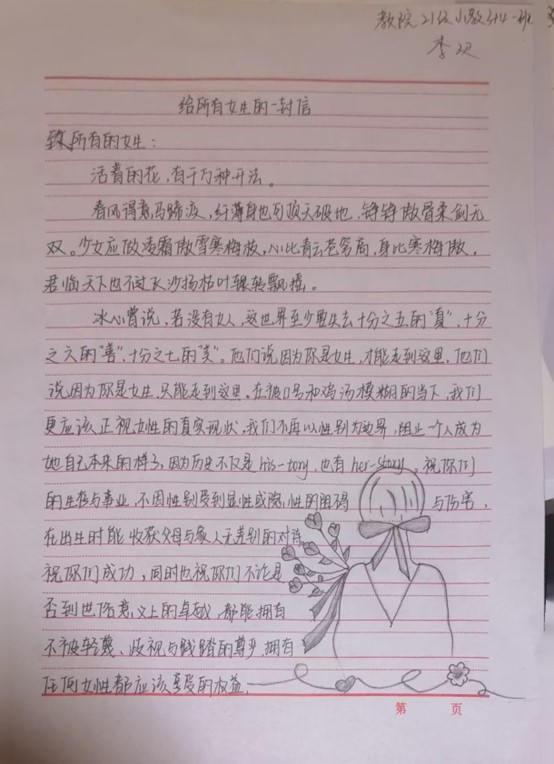 教院21级小教 班
给所有女生的一封信
致所有的女生：
活着的花，有千万种开法。
春风得意马蹄疾，纤薄身也可顶天破地，铮铮傲骨柔剑无
双。少女应做凌霜傲雪寒梅枝，心比青云苍穹高，身比寒梅傲，
君临天下也不过飞沙扬枯叶辗转飘摇。
冰心曾说，若没有女人，这世界至少要失去十分之五的"真"、十分
之六的"善"、十分之七的"美"。他们说因为你是女生，才能走到这里，他们
说因为你是女生，只能走到这里。在被口号和鸡汤模糊的当下，我们
更应该正视女性的真实现状，我们不再以性别为边界，阻止一个人成为
她自己本来的样子，因为历史不仅是his-tory，也有her-story，祝你们
的生活与事业，不因性别受到显性或隐性的阻碍与伤害，
在出生时能收获父母与家人无差别的对待，
祝你们成功，同时也祝你们不论是
否到世俗意义上的卓越，都能拥有
不被轻蔑、歧视与践踏的尊严，拥有
任何女性都应该享受的权益。
第 页